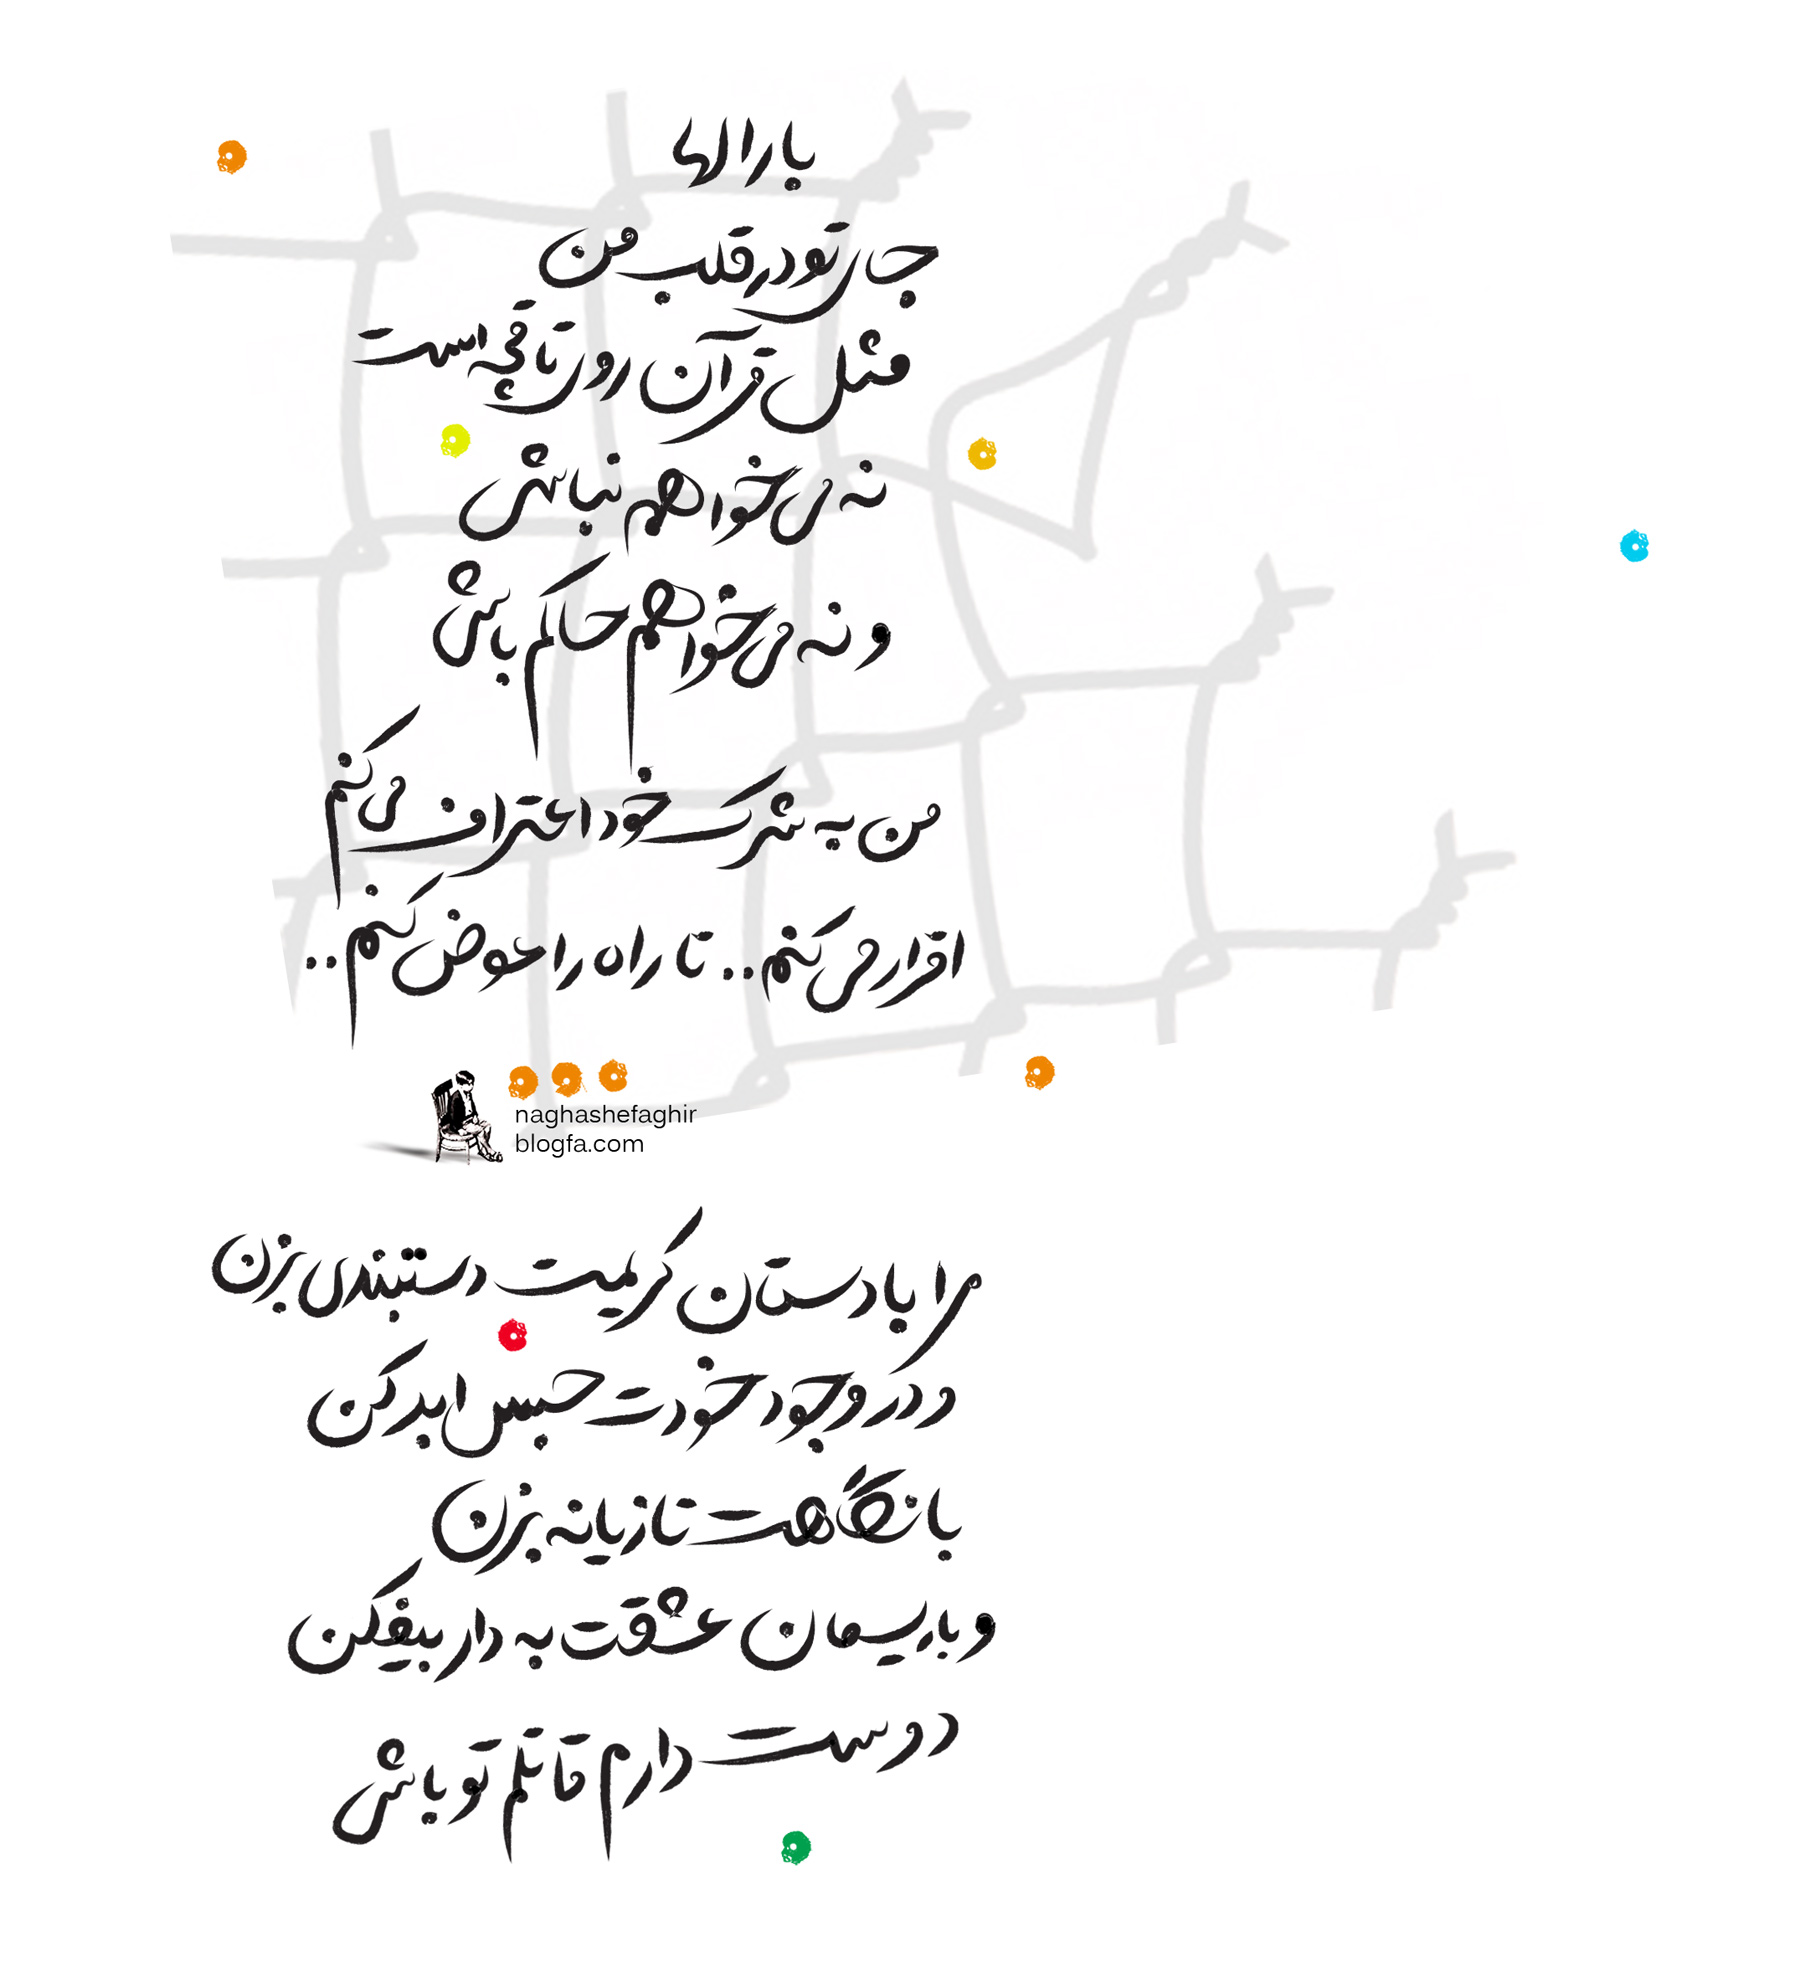 بارالها
جای تو در قلب من
مثل قرآن روی تاقچه است
نه می خواهم نباشی
و نه می خواهم حاکم باشی
من به شرک خود اعتراف می کنم
اقرار می کنم.. تا راه را عوض کنم..
naghashefaghir
blogfa.com
مرا با دستان کریمت دستبندی بزن
و در وجود خودت حبس ابد کن
با نگاهت تازیانه بزن
و با ریسمان عشقت به دار بیفکن
دوست دارم قاتلم تو باشی